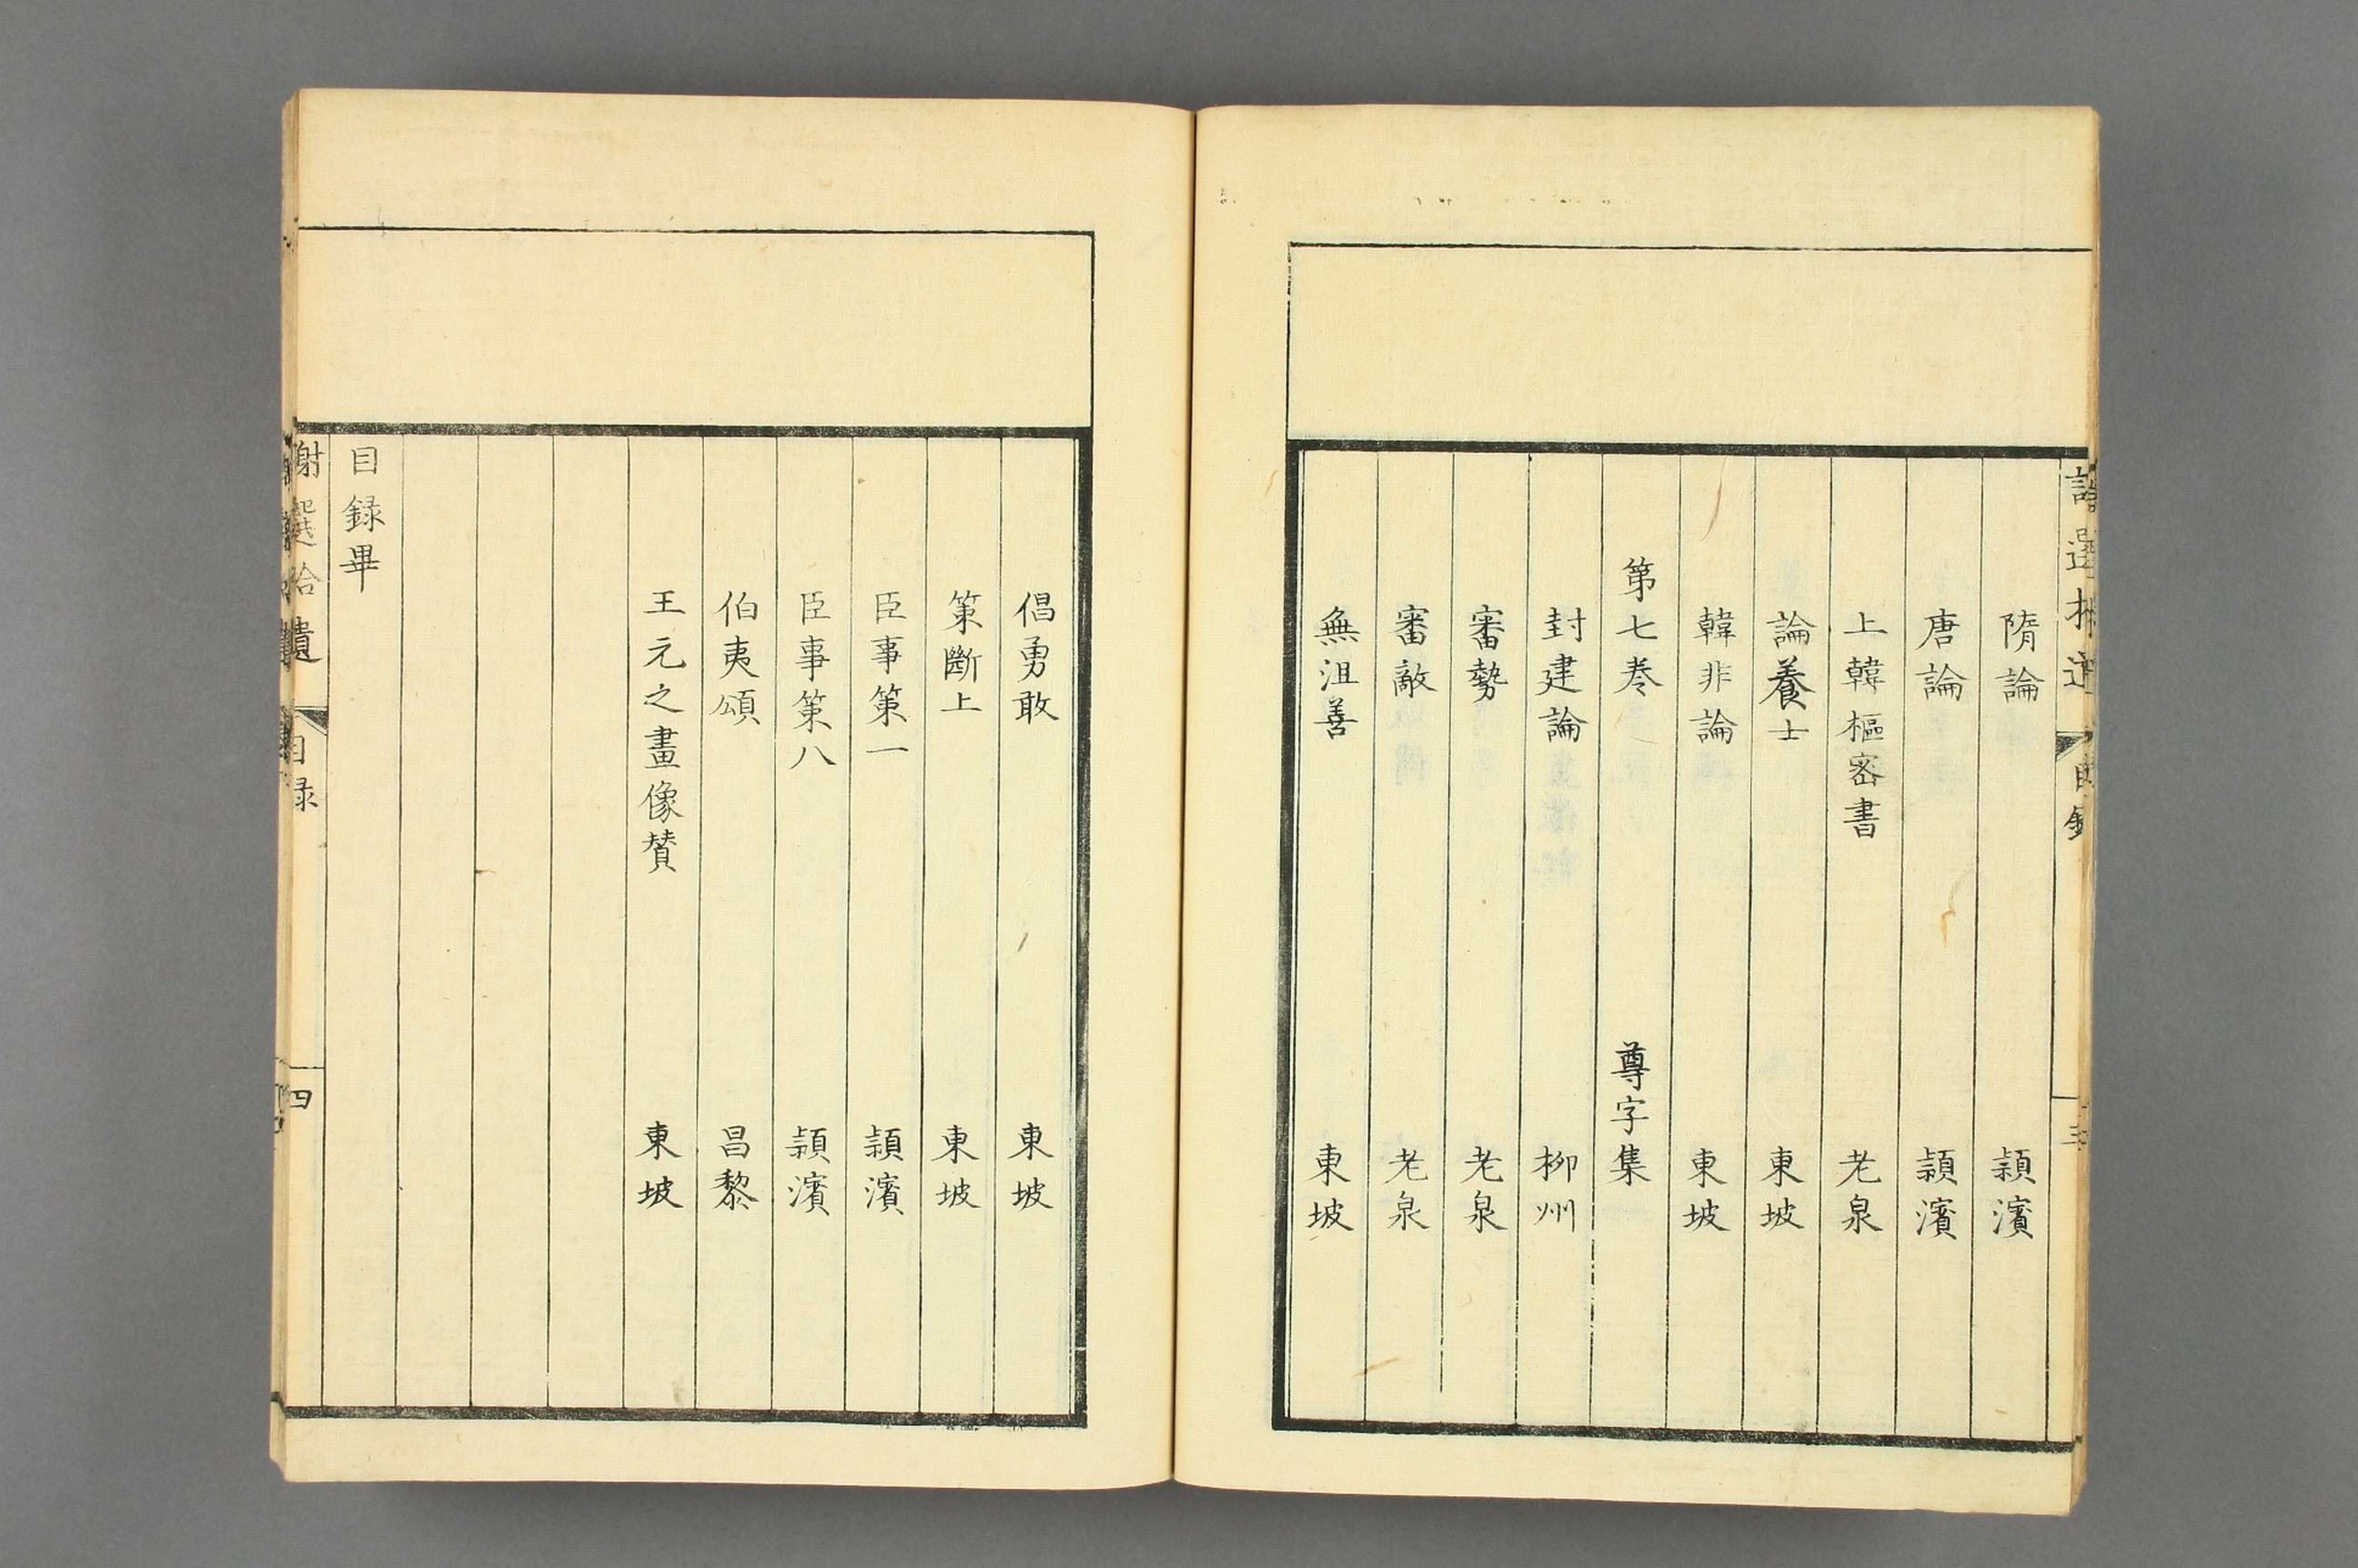 隋論 頴濱
唐論 頴濱
上韓樞密書 老泉
論養士 東坡
韓非論 東坡
第七卷 尊字集
封建論 柳州
審勢 老泉
審敵 老泉
無沮善 東坡
倡勇敢 東坡
策斷上 東坡
臣事策一 頴濱
臣事策八 頴濱
伯夷頌 昌黎
王元之畫像賛 東坡
目録畢
謝選拾遺 目録 四